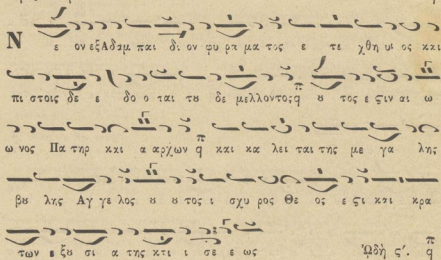 Ν ε ον εξ Αδαμ παι δι ον φυ ρα μα τος ε τε χθη υι ος και
πι στοις δε ε δο ο ται του δε μελλοντος ου τος ε ςιν αι ω
ω νος Πα τηρ και α αρχων και κα λει ται της με γα λης
βου λης Αγ γε λος ου ου τος ι σχυ ρος Θε ος ε ςι και κρα
των ε ξου σι α της κτι ι σε ε ως Ὠδὴ ς΄.